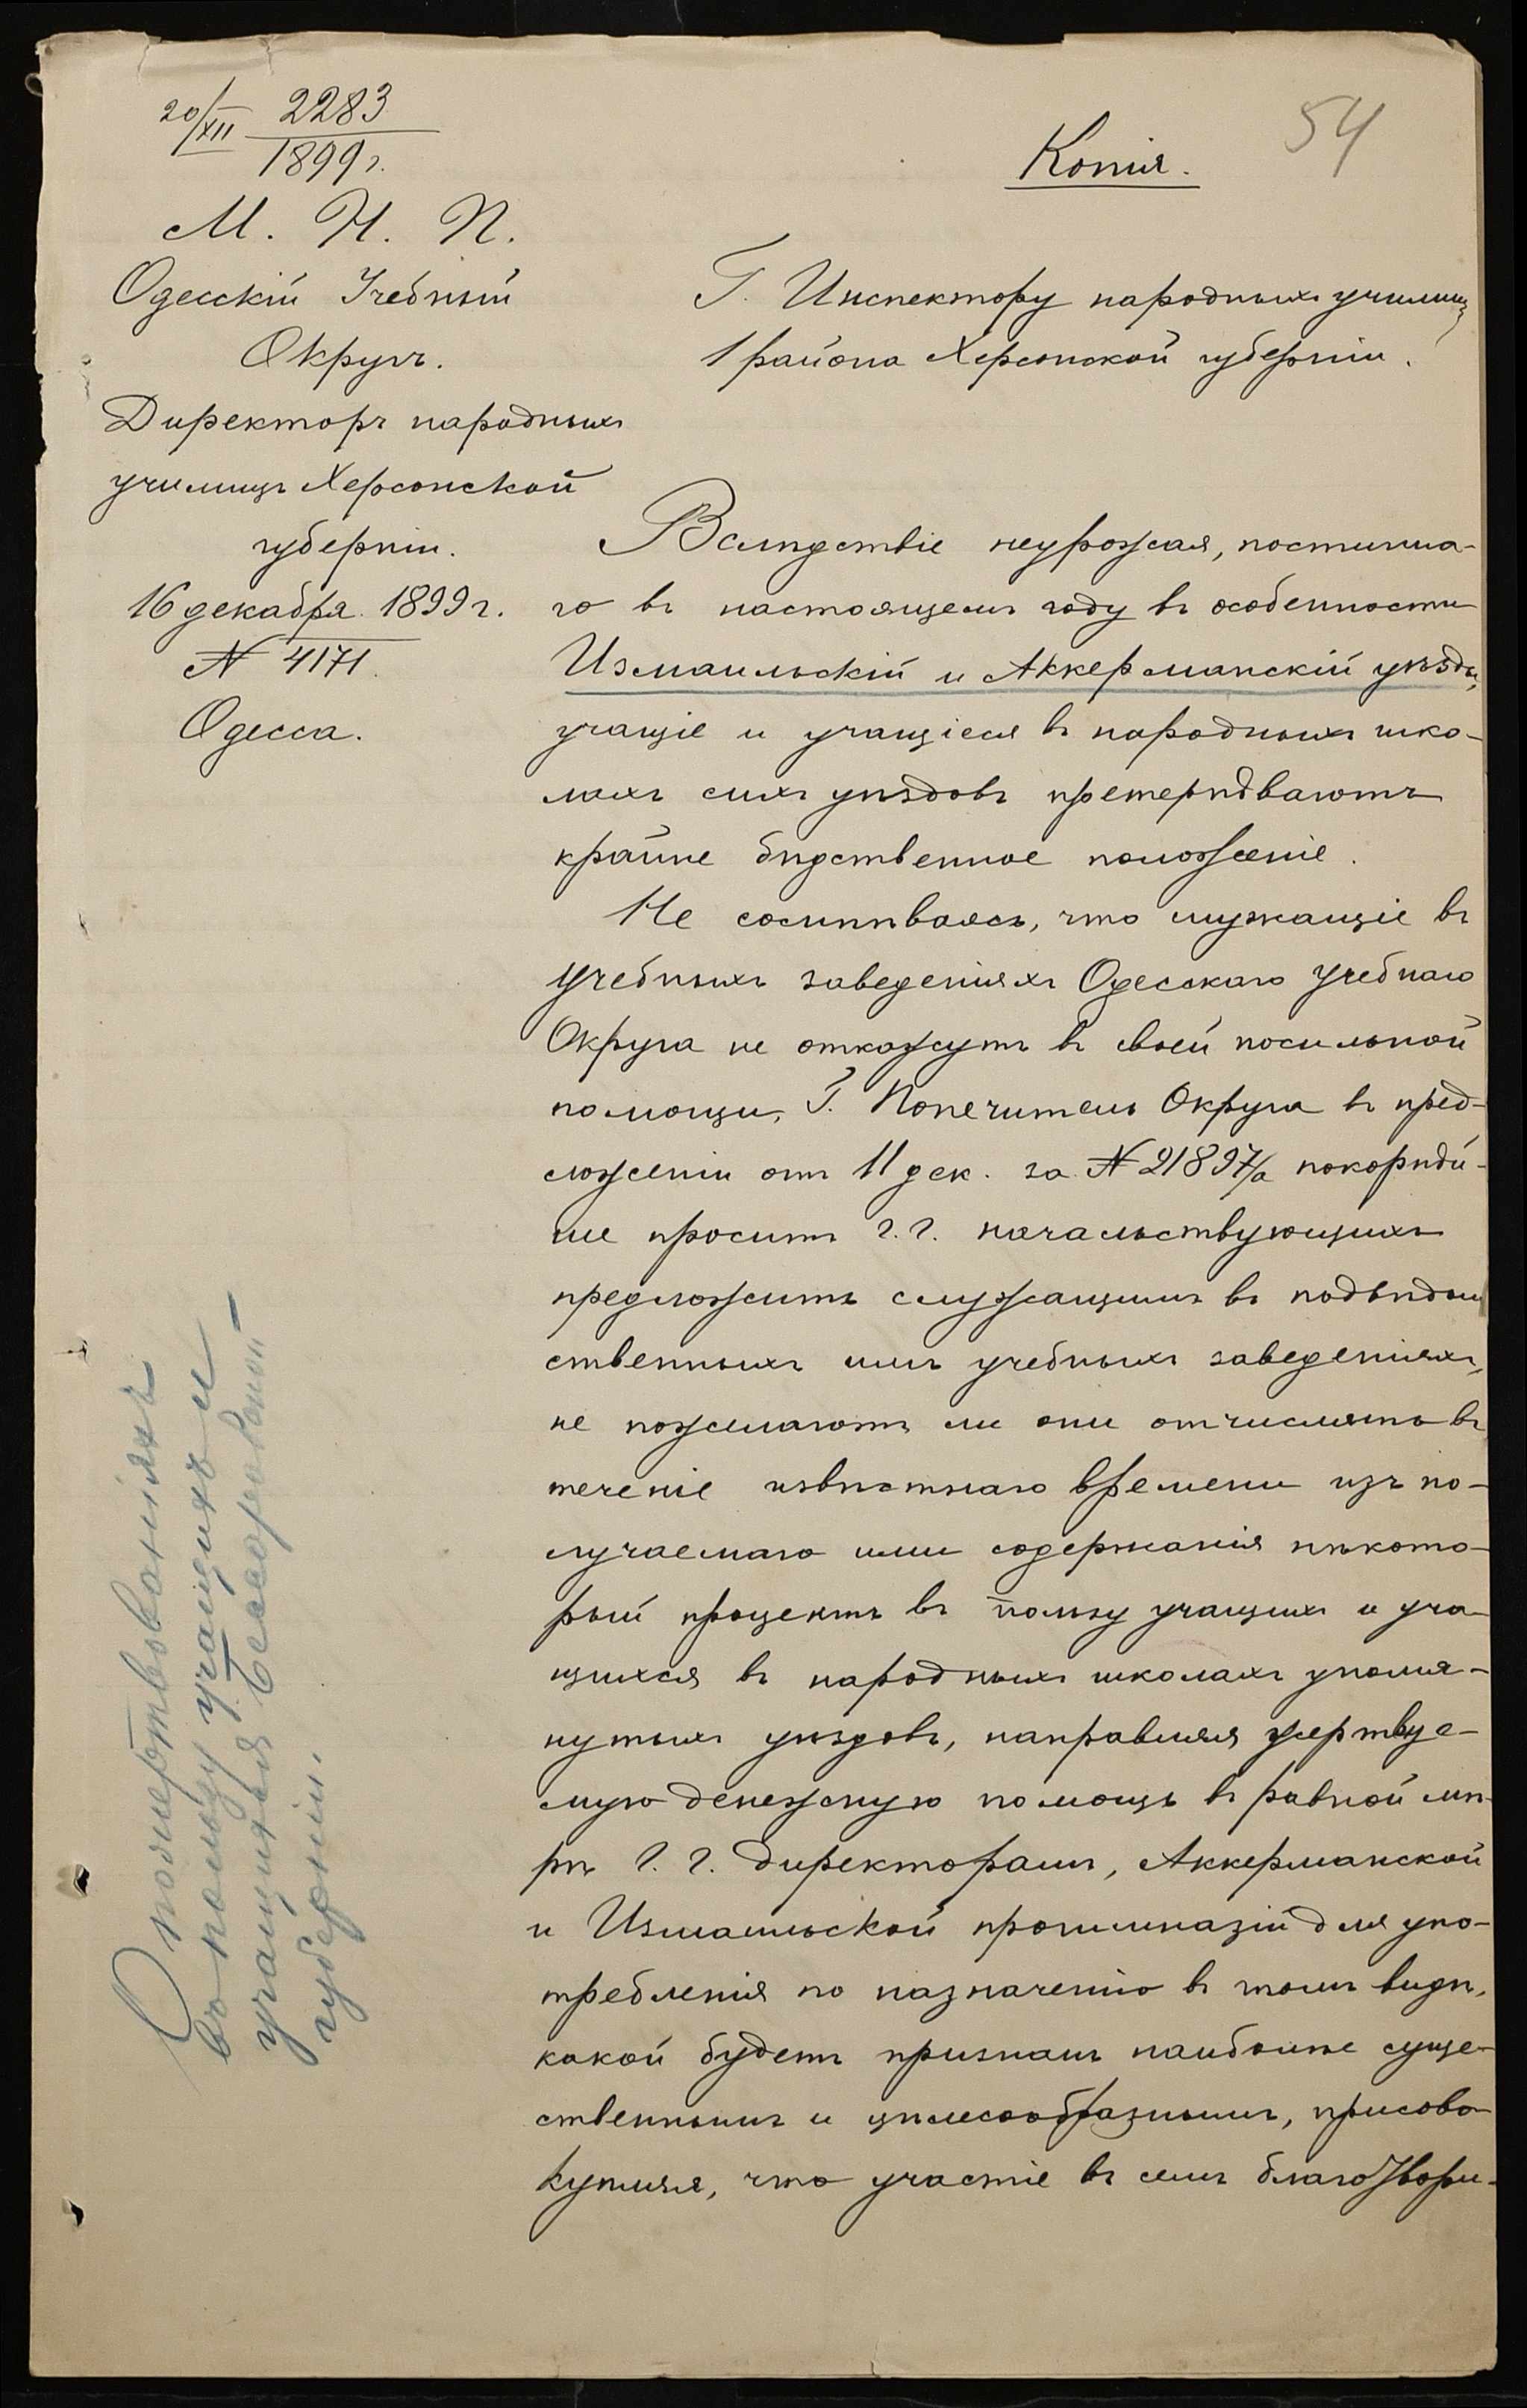 20/XII 2283
1899 г.
54
Копія.
М. Н. П.
Одесскій Учебный
Округъ.
Директоръ народныхъ
училищъ Херсонской
губерніи.
16 декабря 1899 г.
№ 4171.
Одесса.
Г. Инспектору народныхъ училищъ
1 района Херсонской губерніи.
Вслѣдствіе неурожая, постигша-
го въ настоящемъ году въ особенности
Измаильскій и Аккерманскій уѣзды,
учащіе и учащіеся въ народныхъ шко-
лахъ сихъ уѣздовъ претерпѣваютъ
крайне бѣдственное положеніе.
Не сомнѣваясь, что служащіе въ
учебныхъ заведеніяхъ Одесскаго Учебнаго
Округа не откажутъ въ своей посильной
помощи, Г. Попечитель Округа въ пред-
ложеніи отъ 11 дек. за № 21897/а покорнѣй-
ше проситъ г.г. начальствующихъ
предложить служащимъ въ подвѣдом
ственныхъ имъ учебныхъ заведеніяхъ,
не пожелаютъ ли они отчислять въ
теченіе извѣстнаго времени изъ по-
лучаемаго ими содержанія нѣкото-
рый процентъ въ пользу учащихъ и уча-
щихся въ народныхъ школахъ упомя-
нутыхъ уѣздовъ, направляя жертвуе-
мую денежную помощь въ равной мѣ-
рѣ г. г. директорамъ, Аккерманской
и Измаильской прогимназій для упо-
требленія по назначенію въ томъ видѣ,
какой будетъ признанъ наиболѣе суще-
ственнымъ и цѣлесообразнымъ, присово-
купляя, что участіе въ семъ благотвори-
О пожертвованіяхъ
въ пользу учащихъ и
учащихся Бессарабской
губерніи.